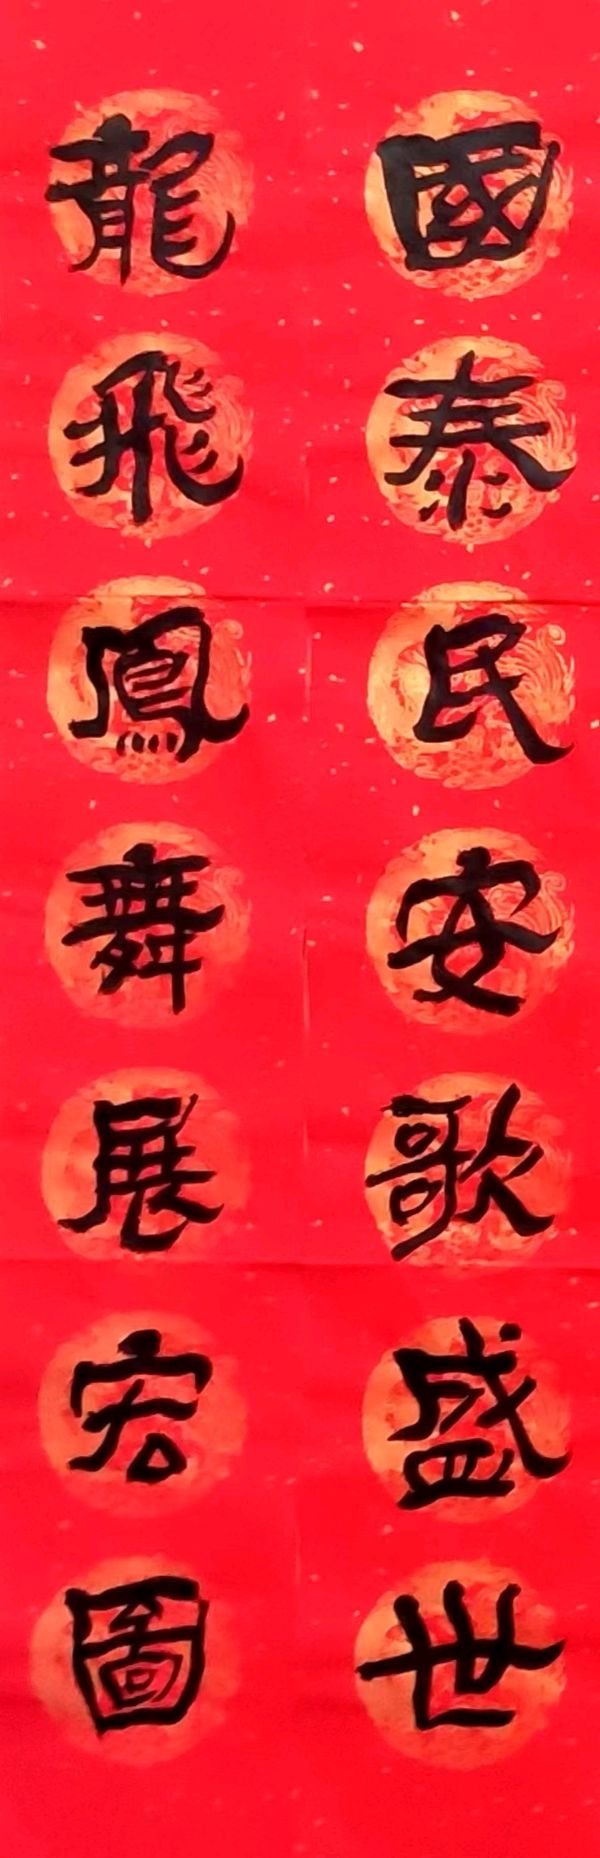 國泰民安歌盛世
龍飛鳳舞展宏圖